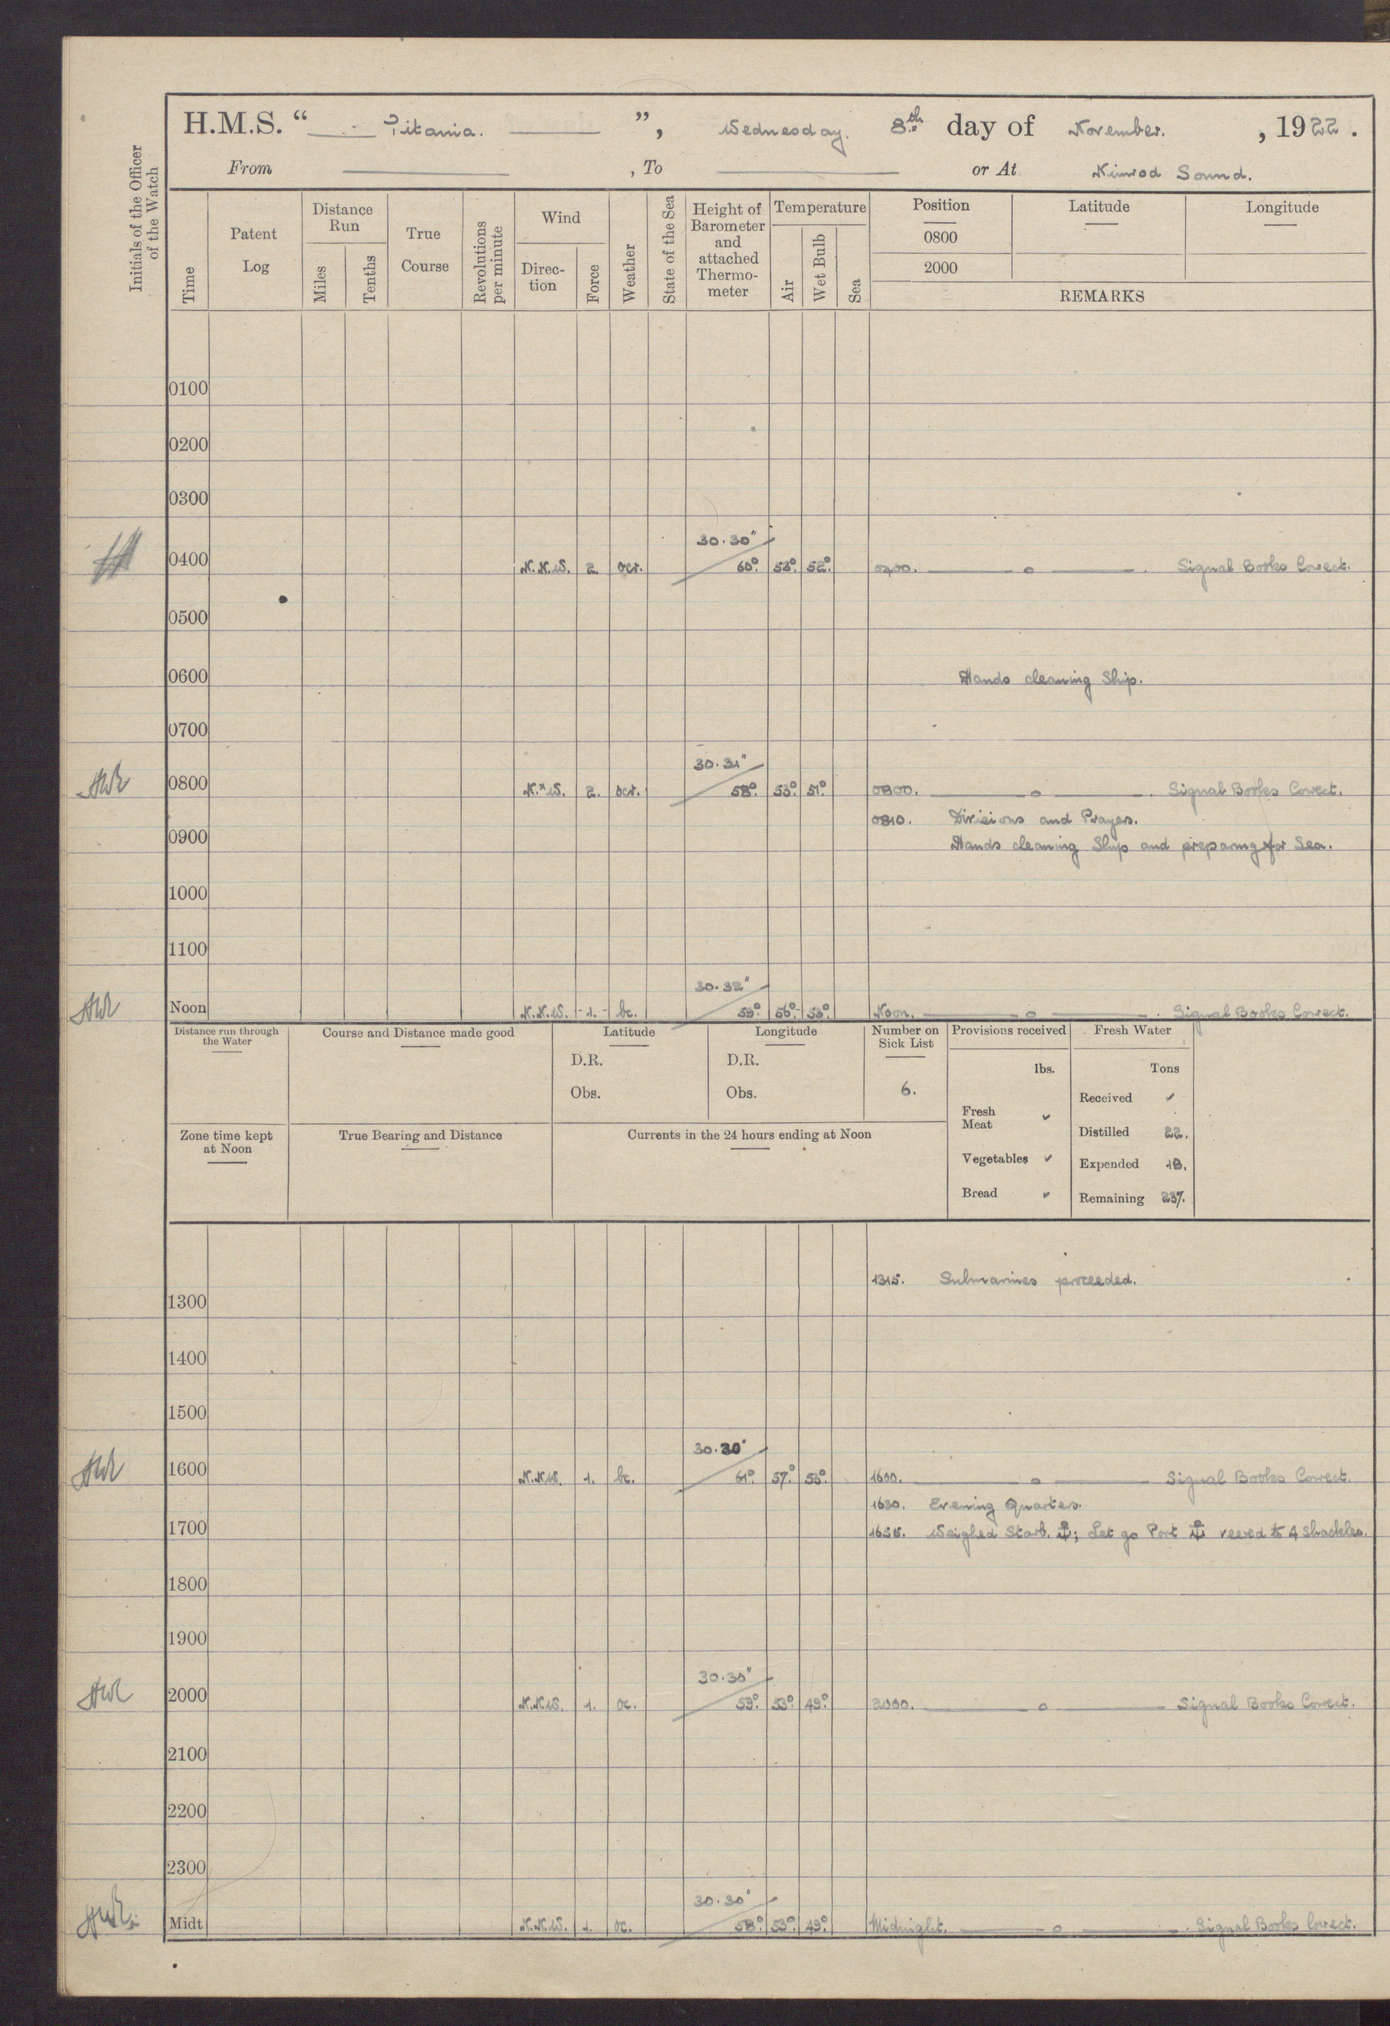 H.M.S. “ Titania. ”, Wednesday. 8th. day of November. , 1922 .
From , To or At Nimrod Sound.
Initials of the Officer of the Watch
Time
Patent Log
Distance Run
Miles
Tenths
True Course
Revolutions per minute
Wind
Direc-tion
Force
Weather
State of the Sea
Height of Barometer and attached Thermo-meter
Temperature
Air
Wet Bulb
Sea
Position
0800
2000
Latitude
Longitude
REMARKS
0100
0200
0300
30.30"
0400 N.N.W. 2 ocr. 60°. 53°. 52°. 0400. ——— o ———. Signal Books Correct.
0500
0600 Hands cleaning Ship.
0700
30.31"
0800 N.×W. 2. ocr. 58°. 53°. 51°. 0800. ——— o ———. Signal Books Correct.
0810. Divisions and Prayers.
0900 Hands cleaning Ship and preparing for Sea.
1000
1100
30.32"
Noon N.N.W. -1.- bc. 59°. 56°. 53°. Noon. ——— o ———. Signal Books Correct.
Distance run through the Water
Course and Distance made good
Latitude
D.R.
Obs.
Longitude
D.R.
Obs.
Number on Sick List
6.
Provisions received
lbs.
Fresh Meat ✓
Vegetables ✓
Bread ✓
Fresh Water
Tons
Received ✓
Distilled 22.
Expended 18.
Remaining 237.
Zone time kept at Noon
True Bearing and Distance
Currents in the 24 hours ending at Noon
1315. Submarines proceeded.
1300
1400
1500
30.30"
1600 N.N.W. 1. bc. 61°. 57°. 53°. 1600. ——— o ——— Signal Books Correct.
1630. Evening Quarters.
1700 Weighed Starb. ⚓; Let go Port ⚓ veered to 4 Shackles.
1800
1900
30.30"
2000 N.N.W. 1. oc. 59°. 53°. 49°. 2000. ——— o ——— Signal Books Correct.
2100
2200
2300
30.30"
Midt N.N.W. 1. oc. 58°. 53°. 49°. Midnight. ——— o ———. Signal Books Correct.